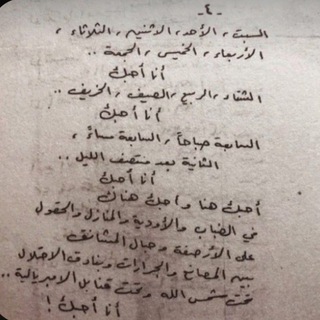 -٤-
السبت، الأحد، الاثنين، الثلاثاء،
الأربعاء، الخميس، الجمعة..
أنا أحبك
الشتاء، الربيع، الصيف، الخريف..
أنا أحبك
السابعة صباحاً، السابعة مساءً،
الثانية بعد منتصف الليل..
أنا أحبك
أحبك هنا وأحبك هناك
في الضباب والأودية والمنازل والحقول
على الأرصفة وحبال المشانق
بين المصانع والمجزرات وبنادق الاحتلال
تحت شمس الله وتحت قنابل الامبريالية..
أنا أحبك!